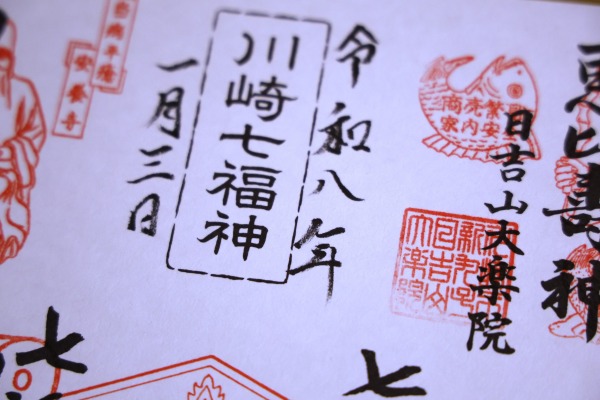 恵比寿神
日吉山大楽院
商売繁昌
家内安全
令和八年
川崎七福神
一月三日
無病平癒
安養寺
七
七